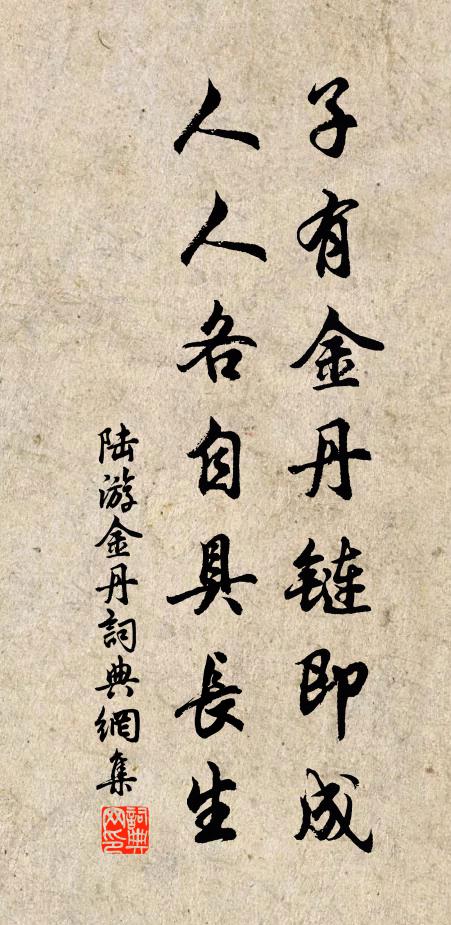 子有金丹鏈即成
人人各自具長生
陆游金丹詞典網集
詞典网印